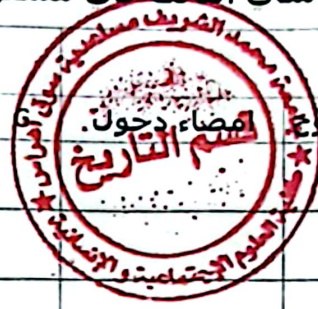 جامعة محمد الشريف مساعدية سوق أهراس
امضاء دحول
قسم التاريخ
كلية العلوم الإجتماعية و الإنسانية